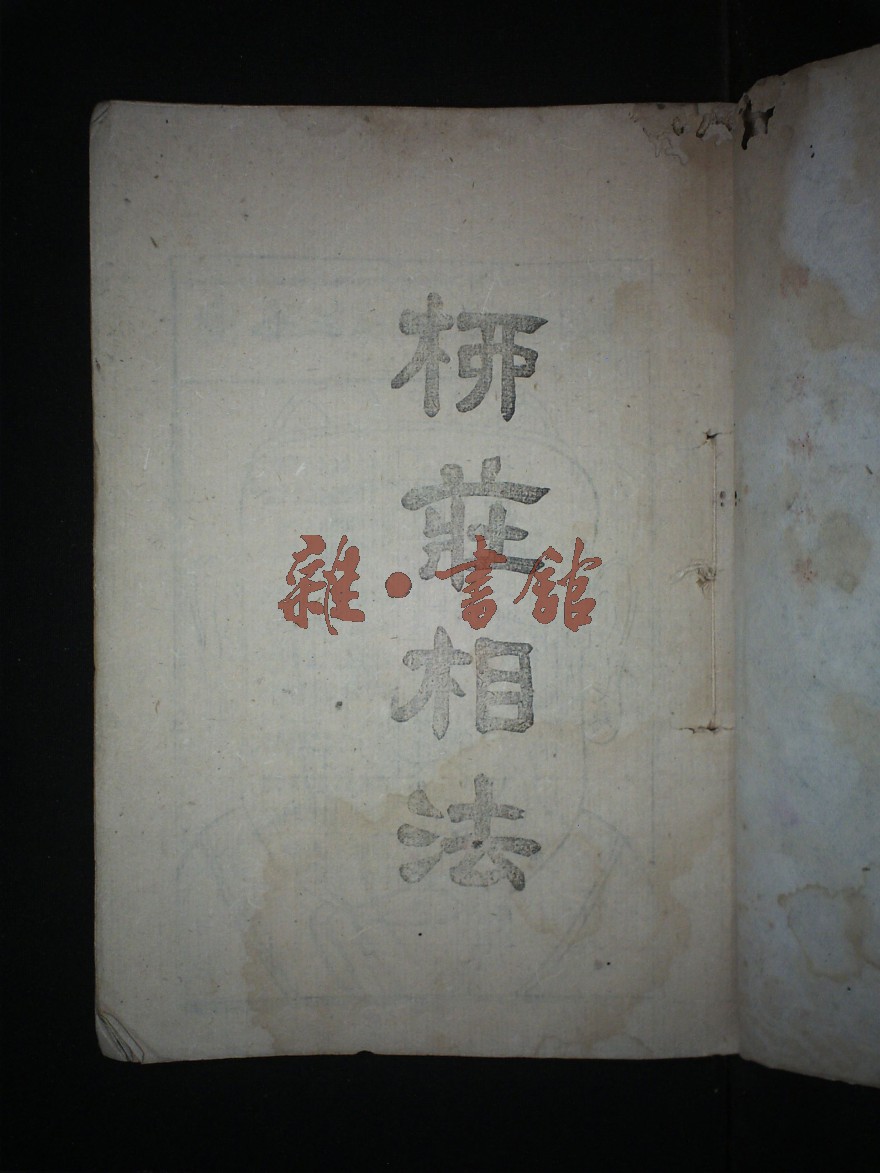 柳莊相法
雜·書館